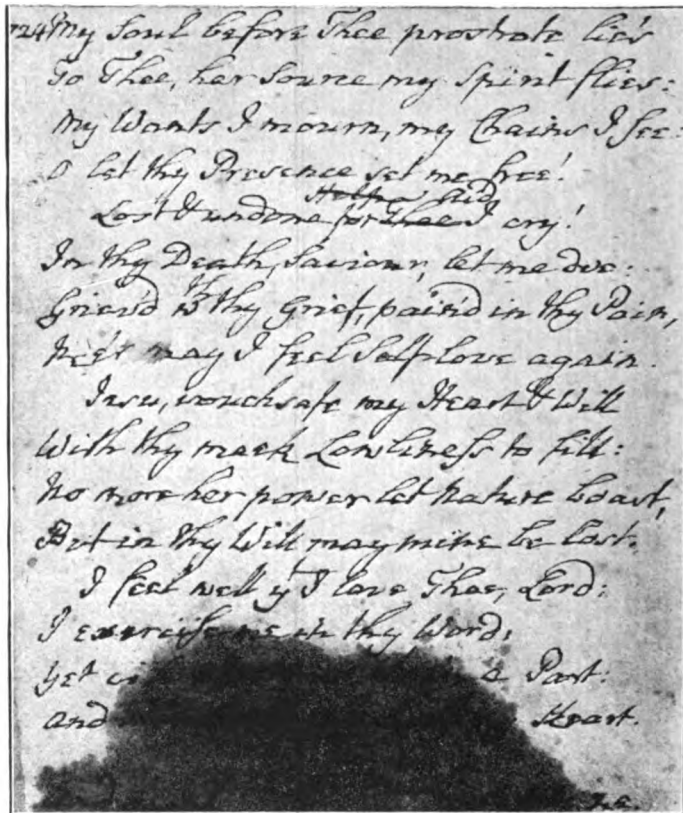 724 My Soul before Thee prostrate lies
To Thee, her Source my Spirit flies:
My Wants I mourn, my Chains I see:
O let thy Presence set me free!
Lost & undone for Thee I cry!
In thy Death, Saviour, let me die:
Griev'd wth thy Grief, pain'd in thy Pain,
Ne'er may I feel Selflove again.
Jesu, vouchsafe my Heart & Will
With thy meek Lowliness to fill:
No more her power let Nature boast,
But in thy Will may mine be lost.
I feel well yt I love Thee, Lord:
I exercise me in thy Word,
Yet a Part:
and Heart.